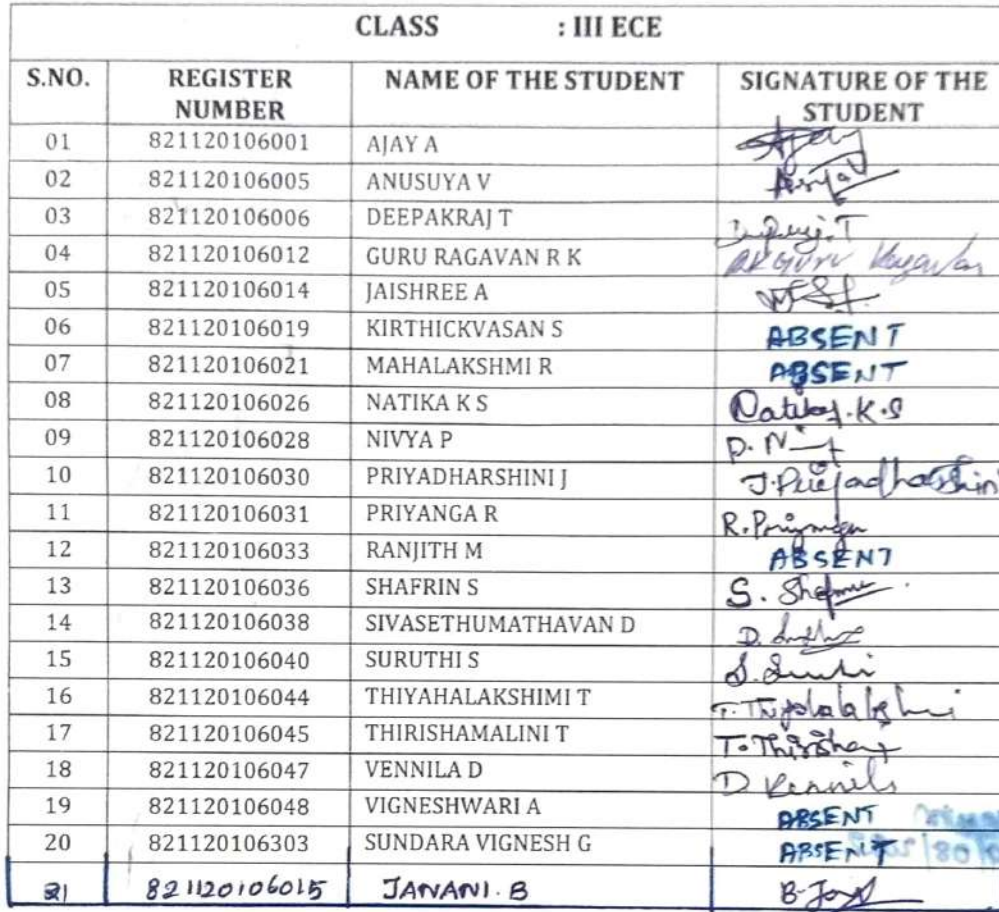 CLASS : III ECE
S.NO. REGISTER NUMBER NAME OF THE STUDENT SIGNATURE OF THE STUDENT
01 821120106001 AJAY A Ajay
02 821120106005 ANUSUYA V
03 821120106006 DEEPAKRAJ T
04 821120106012 GURU RAGAVAN R K
05 821120106014 JAISHREE A
06 821120106019 KIRTHICKVASAN S ABSENT
07 821120106021 MAHALAKSHMI R ABSENT
08 821120106026 NATIKA K S Natika.K.S
09 821120106028 NIVYA P
10 821120106030 PRIYADHARSHINI J J.Priyadharshini
11 821120106031 PRIYANGA R R.Priyanga
12 821120106033 RANJITH M ABSENT
13 821120106036 SHAFRIN S
14 821120106038 SIVASETHUMATHAVAN D
15 821120106040 SURUTHI S
16 821120106044 THIYAHALAKSHIMI T
17 821120106045 THIRISHAMALINI T
18 821120106047 VENNILA D D Vennila
19 821120106048 VIGNESHWARI A ABSENT
20 821120106303 SUNDARA VIGNESH G ABSENT
21 821120106015 JANANI. B